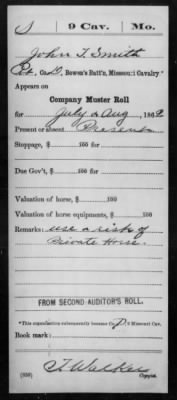 S | 9 Cav. | Mo.
John T. Smith
Pt, Co. D, Bowen's Batt'n, Missouri Cavalry*
Appears on
Company Muster Roll
for July & Aug, 1862
Present or absent Present
Stoppage, $ 100 for
Due Gov't, $ 100 for
Valuation of horse, $ 100
Valuation of horse equipments, $ 100
Remarks: use & risk of
Private Horse.
FROM SECOND AUDITOR'S ROLL.
*This organization subsequently became Co. D, 9 Missouri Cav.
Book mark:
(858) T. Walker
Copyist.